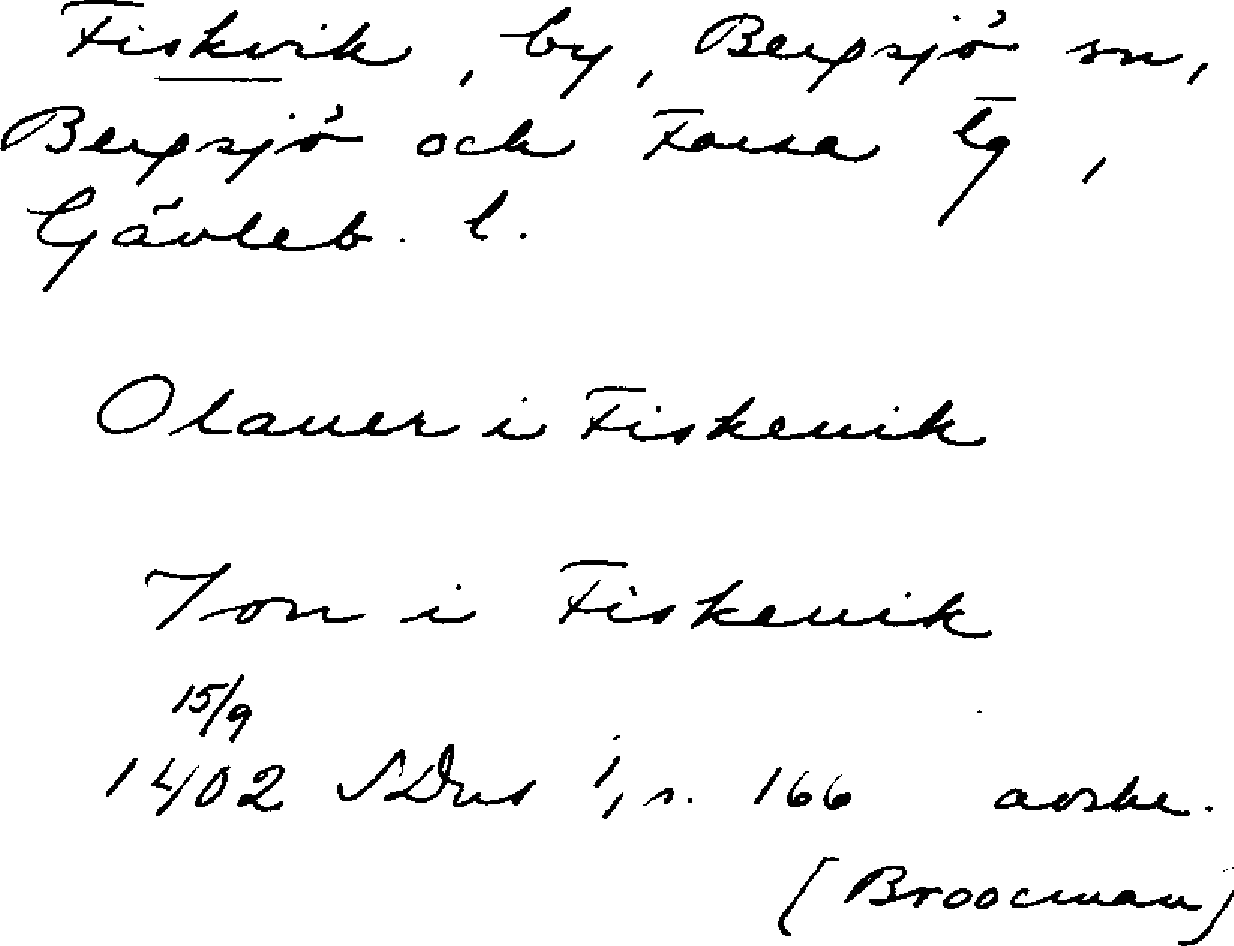 Fiskvik, by, Bergsjö sn,
Bergsjö och Forsa tg,
Gävleb. l.
Olauer i Fiskeuik
Jon i Fiskeuik
15/9
1402 SDns 1, s. 166 avskr.
(Broocman)